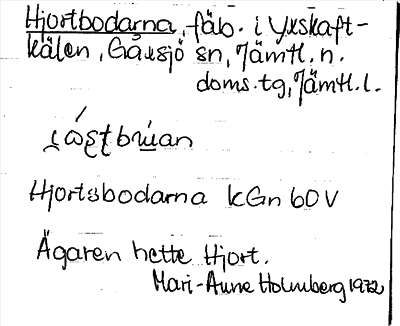 Hjortbodarna, fäb. i Yxskaft-
kälen, Gåxsjö sn, Jämtl. n.
doms. tg, Jämtl. l.
Hjortsbodarna kGn 60 V
Ägaren hette Hjort.
Mari-Anne Holmberg 1972